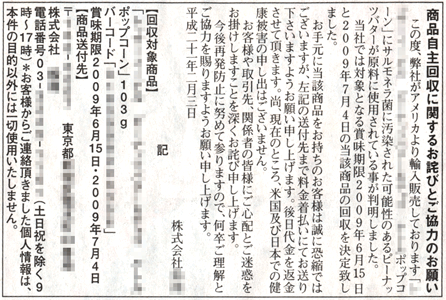 商品自主回収に関するお詫びとご協力のお願い
この度、弊社がアメリカより輸入販売しております「 ポップコ
ーン」にサルモネラ菌に汚染された可能性のあるピーナッ
ツバターが原料に使用されている事が判明しました。
当社では対象となる賞味期限2009年6月15日
と2009年7月4日の当該商品の回収を決定致し
ました。
お手元に当該商品をお持ちのお客様は誠に恐縮では
ございますが、左記の送付先まで料金着払いにてお送り
下さいますようお願い申し上げます。後日代金を返金
させて頂きます。尚、現在のところ、米国及び日本での健
康被害の申し出はございません。
お客様や取引先、関係者の皆様にご心配とご迷惑を
お掛けしますことを深くお詫び申し上げます。
今後再発防止に努めて参りますので、何卒ご理解と
ご協力を賜りますようお願い申し上げます。
平成二十一年二月三日
株式会社
記
【回収対象商品】
ポップコーン」103g
バーコード「
賞味期限2009年6月15日・2009年7月4日
【商品送付先】
〒 東京都
株式会社
電話番号03- (土日祝を除く9
時~17時)*お客様からご連絡頂きました個人情報は、
本件の目的以外には一切使用いたしません。